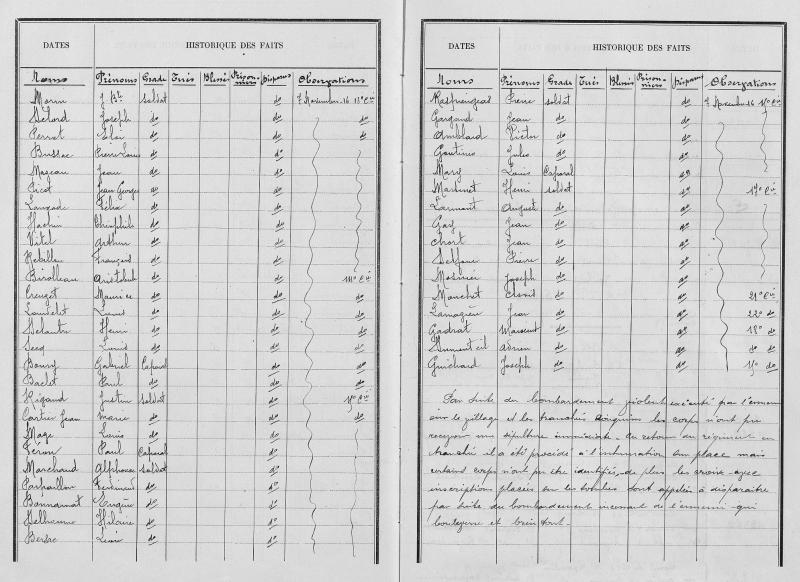 DATES HISTORIQUE DES FAITS
Noms Prénoms Grade Tués Blessés Prisonniers Disparus Observations
Marin J. Bte soldat do 7 Novembre 16
Délord Joseph do do do
Perrot do do do
Bussac Pierre Louis do do
Mazeau Jean do do
Picot Jean Georges do do
Lanzade Félix do do
Hachin Théophile do do
Vitel Arthur do do
Rebiller François do do
Birolleau Aristide do do
Creuzet Maurice do do do
Louis do do do
Delautre Henri do do do
Secq Louis do do do
Boury Gabriel Caporal do do
Baclet Paul do do do
Rigaud Justin soldat do
Cartier Jean Marie do do do
Mage Louis do do
Féron Paul Caporal do
Marchand Alphonse soldat do
Parpaillon Ferdinand do do
Bonnamat Eugène do do
Delhaume Hilaire do do
Léon do do
DATES HISTORIQUE DES FAITS
Noms Prénoms Grade Tués Blessés Prisonniers Disparus Observations
Pierre soldat do 7 Novembre 16
Gargaud Jean do do
Amblard do do
Goutines Jules do do
Mary Louis Caporal do
Martinet Henri soldat do 17e Cie
Larmant Auguste do do
Gay Jean do do
Chort Jean do do
Delfour Pierre do do
Mesnier Joseph do do
Manchet do do 21e Cie
Jean do do 22e do
Gadrat do do 18e do
Dumonteil Adrien do do do
Guichard Joseph do do do
Par suite du bombardement violent exécuté par l'ennemi
sur le village et les tranchées les corps n'ont pu
recevoir une sépulture immédiate. Au retour du régiment en
tranchée il a été procédé à l'inhumation sur place mais
certains corps n'ont pu être identifiés, de plus les croix avec
inscription placées sur les tombes sont appelées à disparaître
par suite du bombardement incessant de l'ennemi qui
bouleverse et tout.